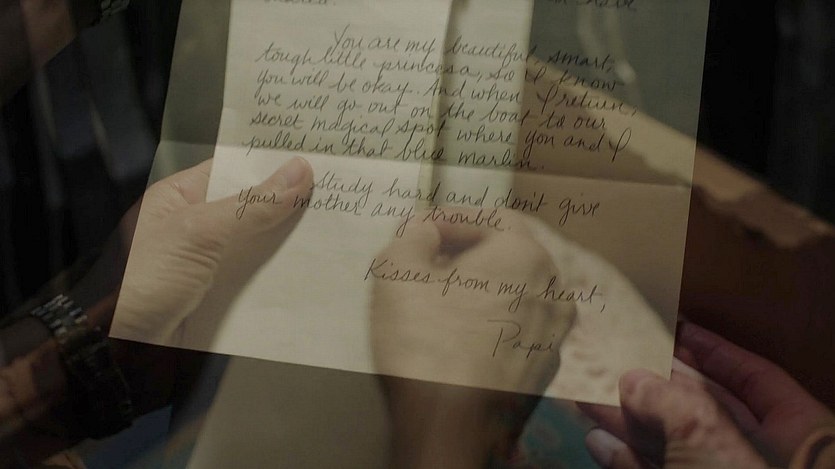 have
You are my beautiful, smart,
tough little princesa, so I know
you will be okay. And when I return,
we will go out on the boat to our
secret magical spot where you and I
pulled in that blue marlin.
Study hard and don't give
your mother any trouble.
Kisses from my heart,
Papi